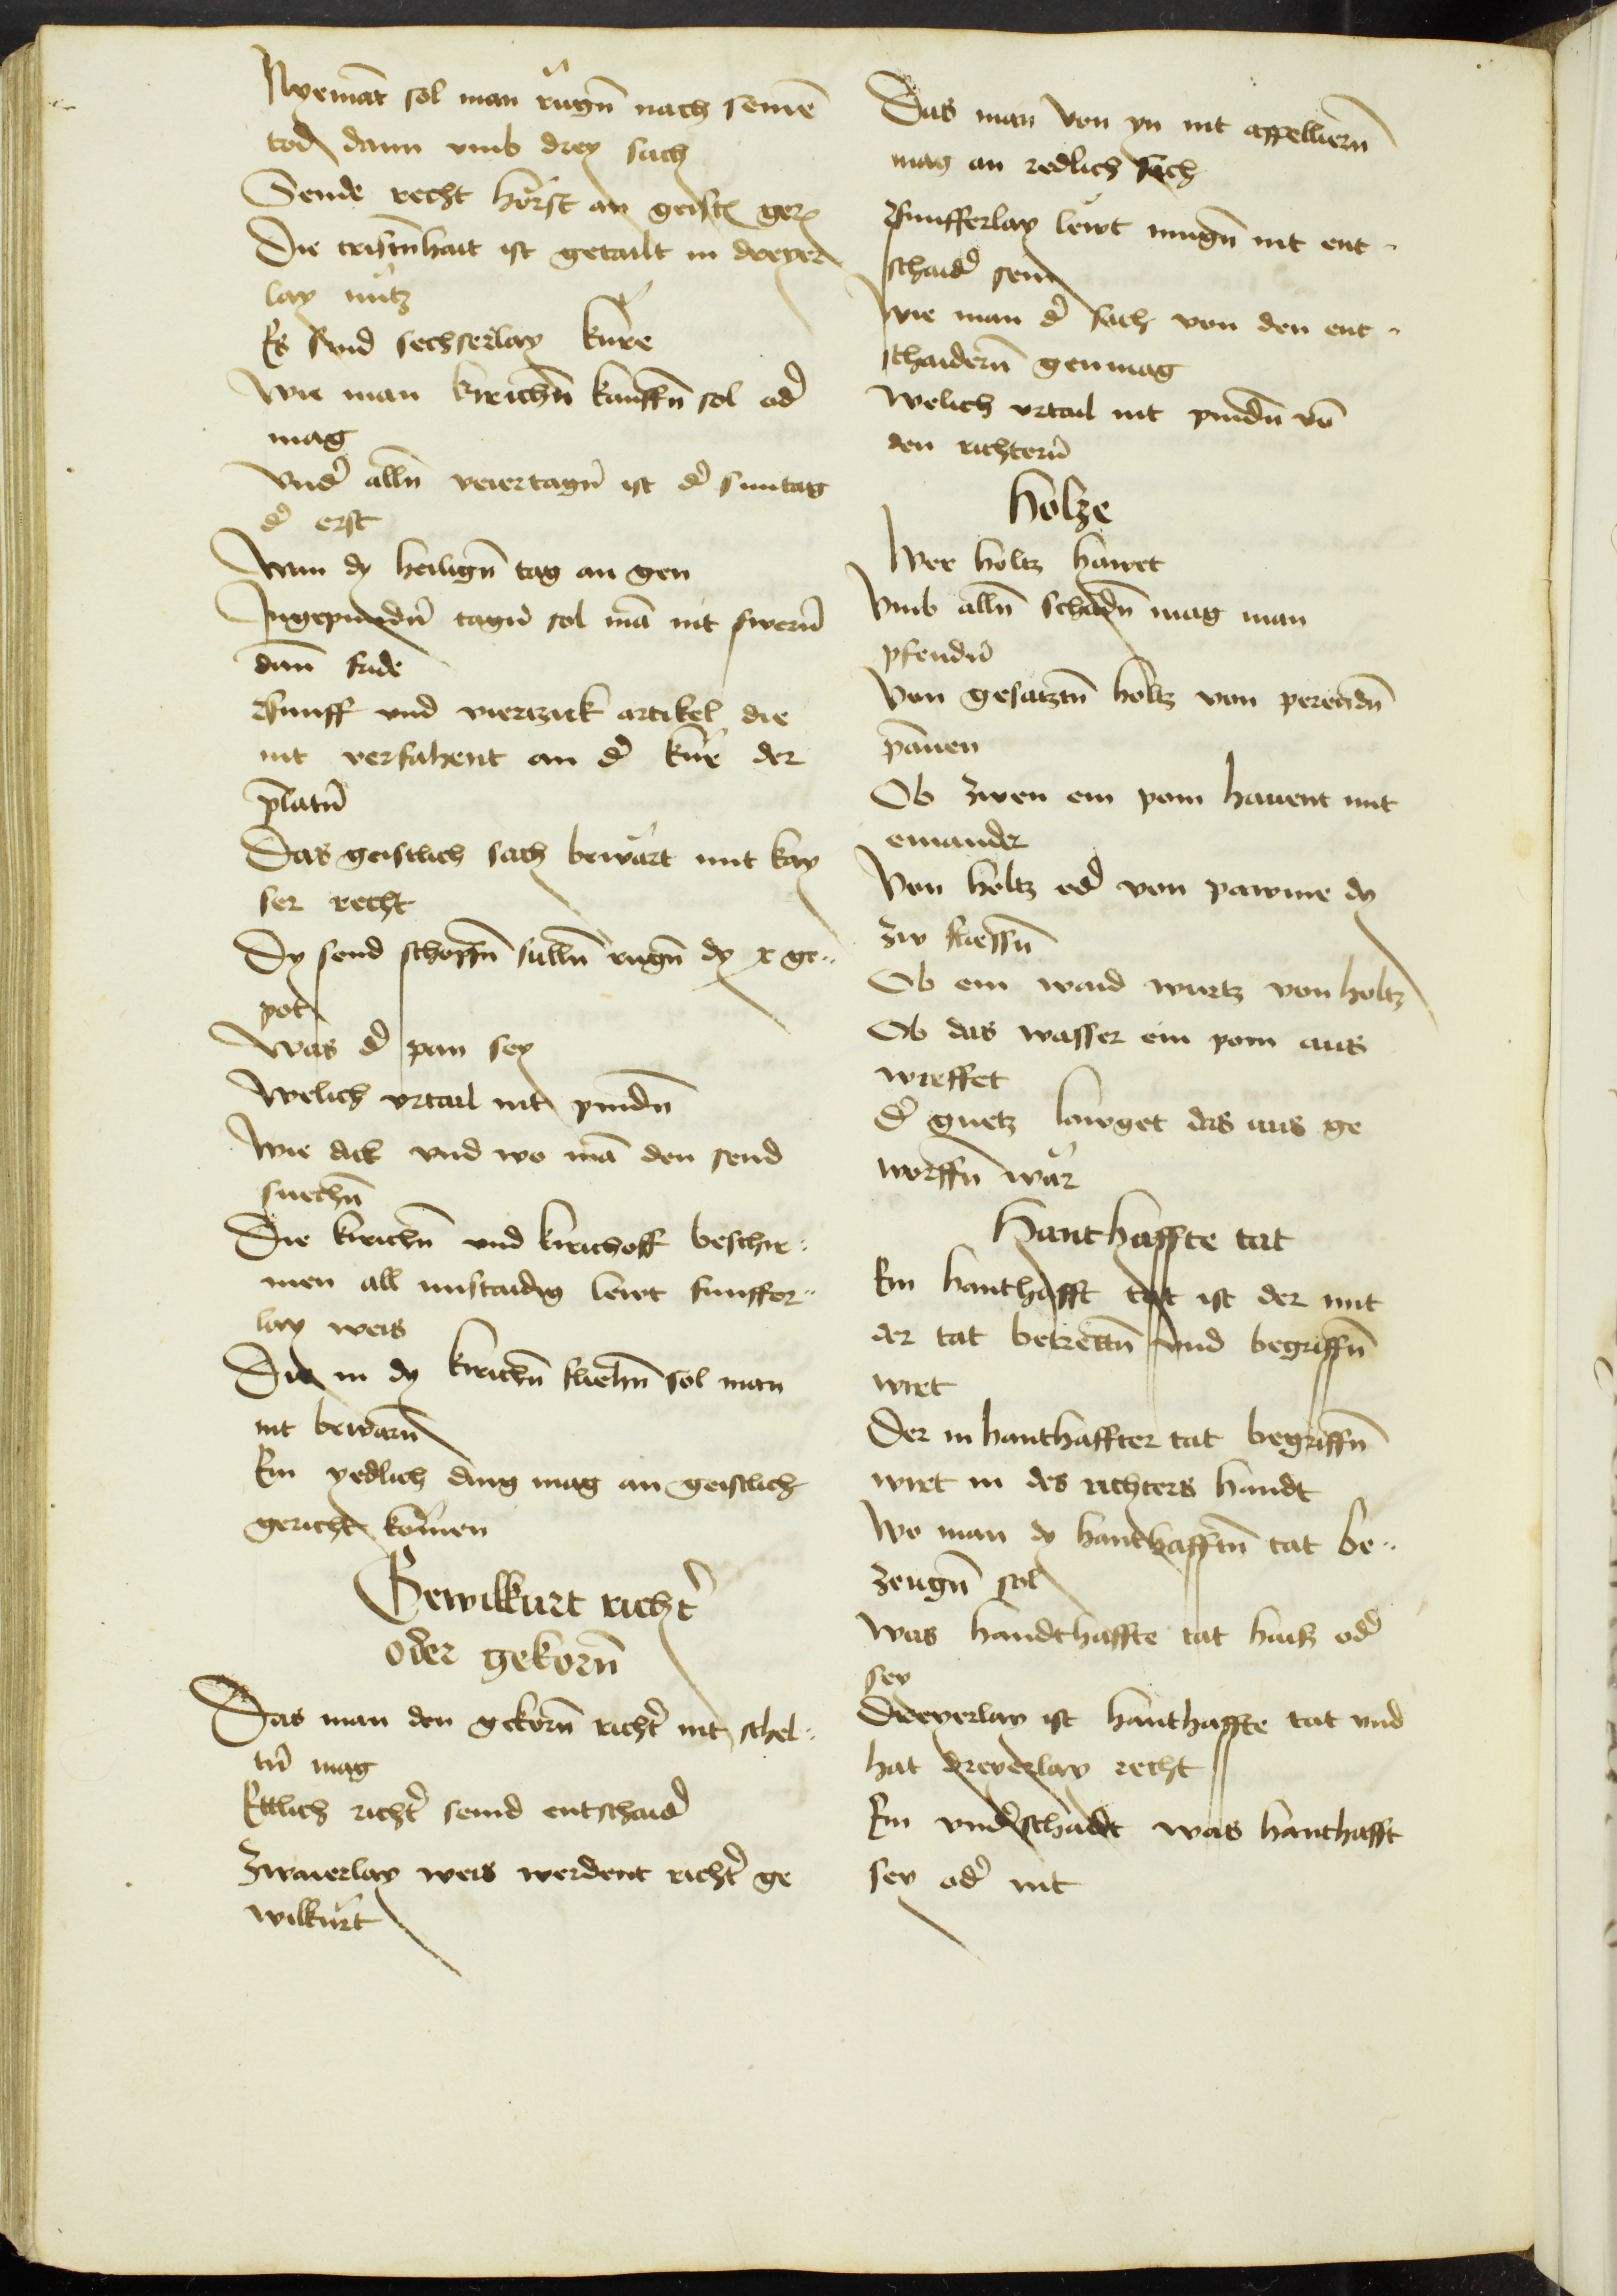 Nyemāt sol man rugn̄ nach seinē
tod dann vmb drey sach
Sende recht hörst an geist ger
Die cristn̄hait ist getailt in dreyer
lay nutz
Es sind sechserlay kure
Wie man kirichn̄ kauffn̄ sol od̄
mag
Vnd̄ alln̄ veiertagn̄ ist d̄ suntag
d̄ erst
Wan dy heilign̄ tag an gen
Ingepundn̄ tagn̄ sol mā nit swern̄
dan̄ fride
Funff vnd viertzick artikel die
nit versahent an d̄ kure der
p̄latn̄
Das geistlich sach bewärt mit kay
ser recht
Dy send schoffn̄ sulln̄ rugn̄ dy x ge„
pot
Was d̄ pan sey
Welich vrtail nit pindn̄
Wie dick vnd wo mā den send
suechn̄
Die kirichn̄ vnd kirichoff beschir„
men all mistaidig lewt funffer„
lay weis
Die in dy kirichn̄ fliehn̄ sol man
nit bewarn̄
Ein yedlich ding mag an geistlich
gericht kom̄en
Gewilkurt richt̄
oder gekorn̄
Das man den gekorn̄ richt̄ nit schel„
tn̄ mag
Ettlich richt̄ seind entschaid̄
Zwaierlay weis werdent richt̄ ge
wilkurt
Das man von yn nit appelliern̄
mag an redlich sach
Funfferlay lewt mugn̄ nit ent„
schaid̄ sein
Wie man d̄ sach von den ent„
schaidern̄ gen mag
Welich vrtail nit pindn̄ vō
den richtern̄
Holze
Wer holtz hawet
Vmb alln̄ schadn̄ mag man
pfendn̄
Von gesatztn̄ holtz von perendn̄
pāmen
Ob zwen ein pom hauent mit
einander
Von holtz od̄ von pawme dy
zw fliessn̄
Ob ein waid wurtz von holtz
Ob das wasser ein pom aus
wirffet
d̄ gnetz lawget das aus ge
worffn̄ wär
Hanthaffte tat
Ein hanthafft tat ist der mit
der tat betrettn̄ vnd begriffn̄
wirt
Der in hanthaffter tat begriffn̄
wirt in des richters handt
Wo man dy hanthafftn̄ tat be„
zeugn̄ sol
Was handthaffte tat haiß od̄
sey
Dreyerlay ist hanthaffte tat vnd
hat dreyerlay recht
Ein vnd̄schaidt was hanthafft
sey od̄ nit